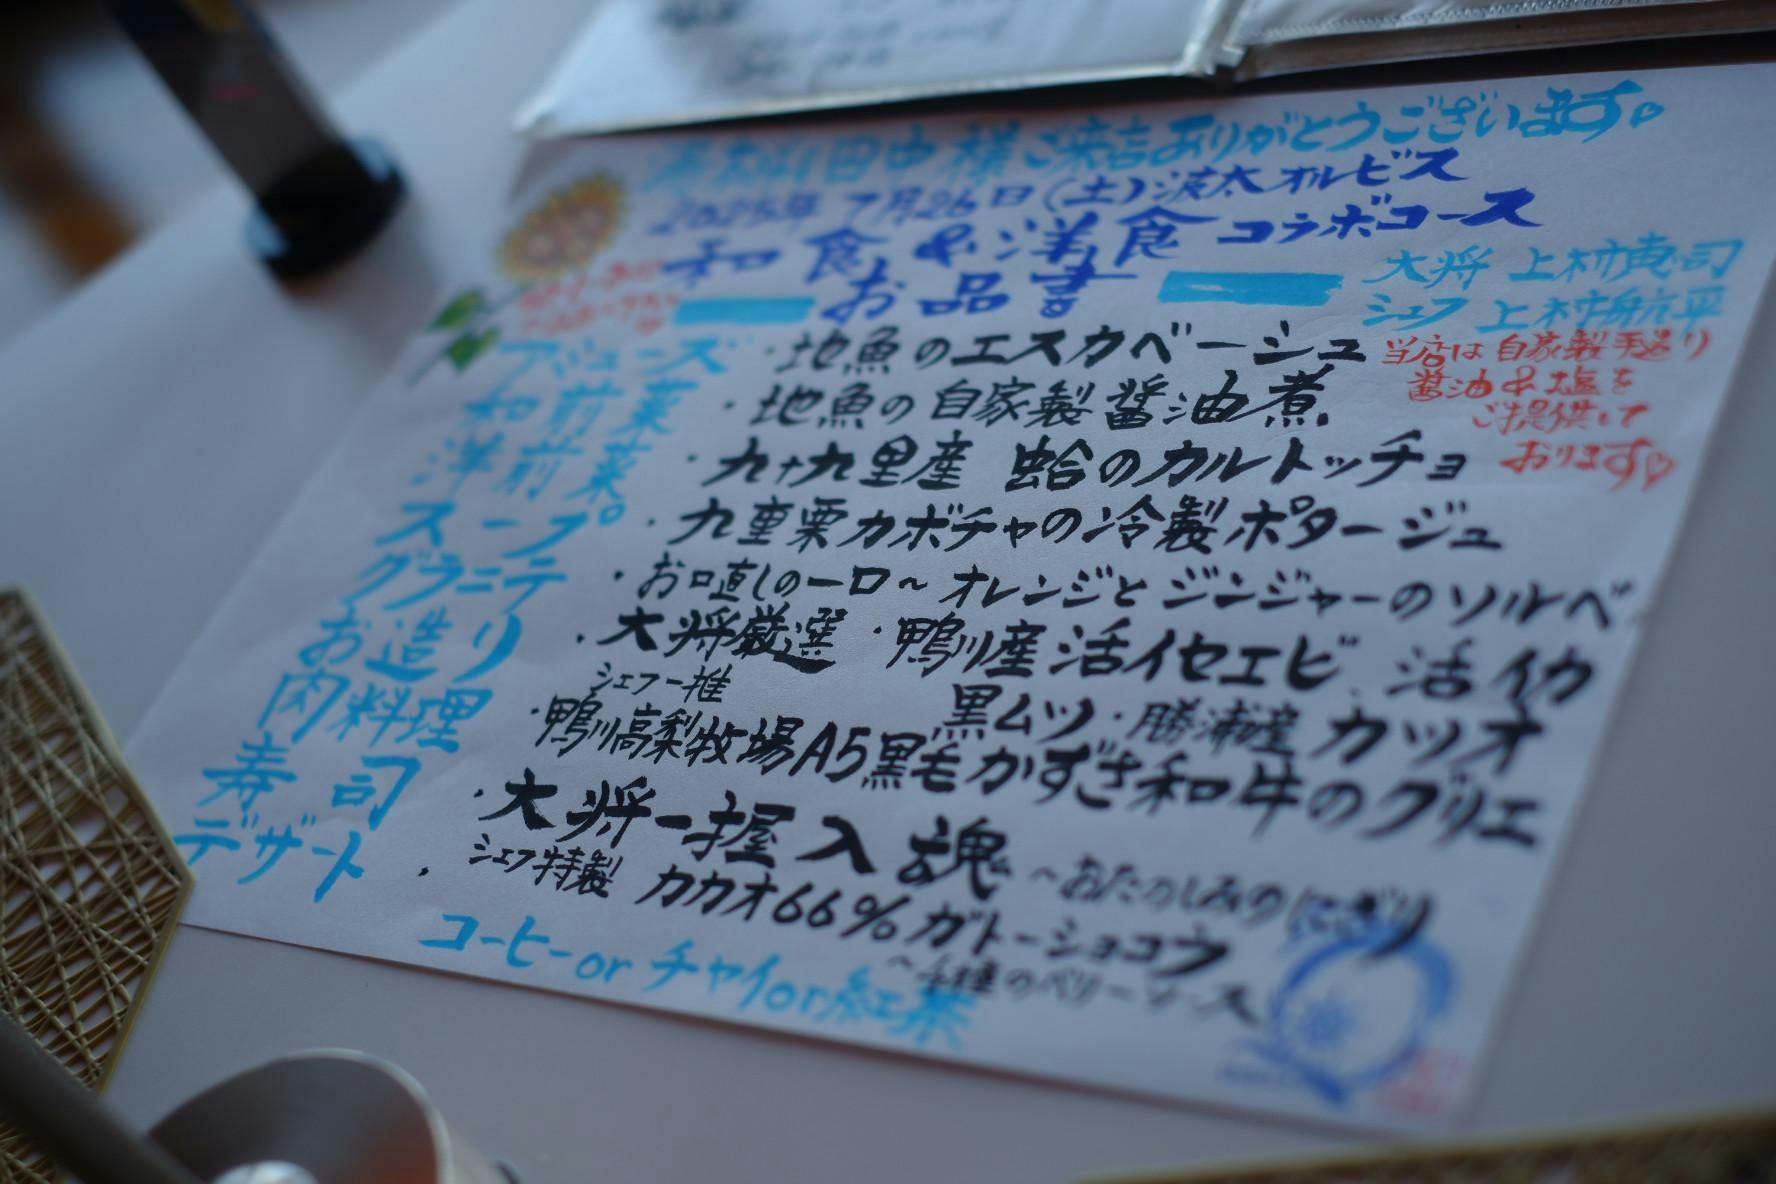 田中様ご来店ありがとうございます。
2025年 7月26日(土)波太オルビス
和食&洋食コラボコース
お品書
大将 上村恵司
シェフ 上村航平
当店は自家製手造り
醤油&塩を
ご提供して
おります♡
アミューズ ・地魚のエスカベーシュ
和前菜 ・地魚の自家製醤油煮
洋前菜 ・九十九里産 蛤のカルトッチョ
スープ ・九重栗カボチャの冷製ポタージュ
グラニテ ・お口直しの一口~オレンジとジンジャーのソルベ
お造り ・大将厳選・鴨川産活イセエビ、活イカ
黒ムツ・勝浦産カツオ
シェフ一推
肉料理 ・鴨川高梨牧場A5黒毛かずさ和牛のグリエ
寿司 ・大将一握入魂~おたのしみのにぎり
デザート ・シェフ特製 カカオ66%ガトーショコラ
のベリーソース
コーヒーorチャイor紅茶